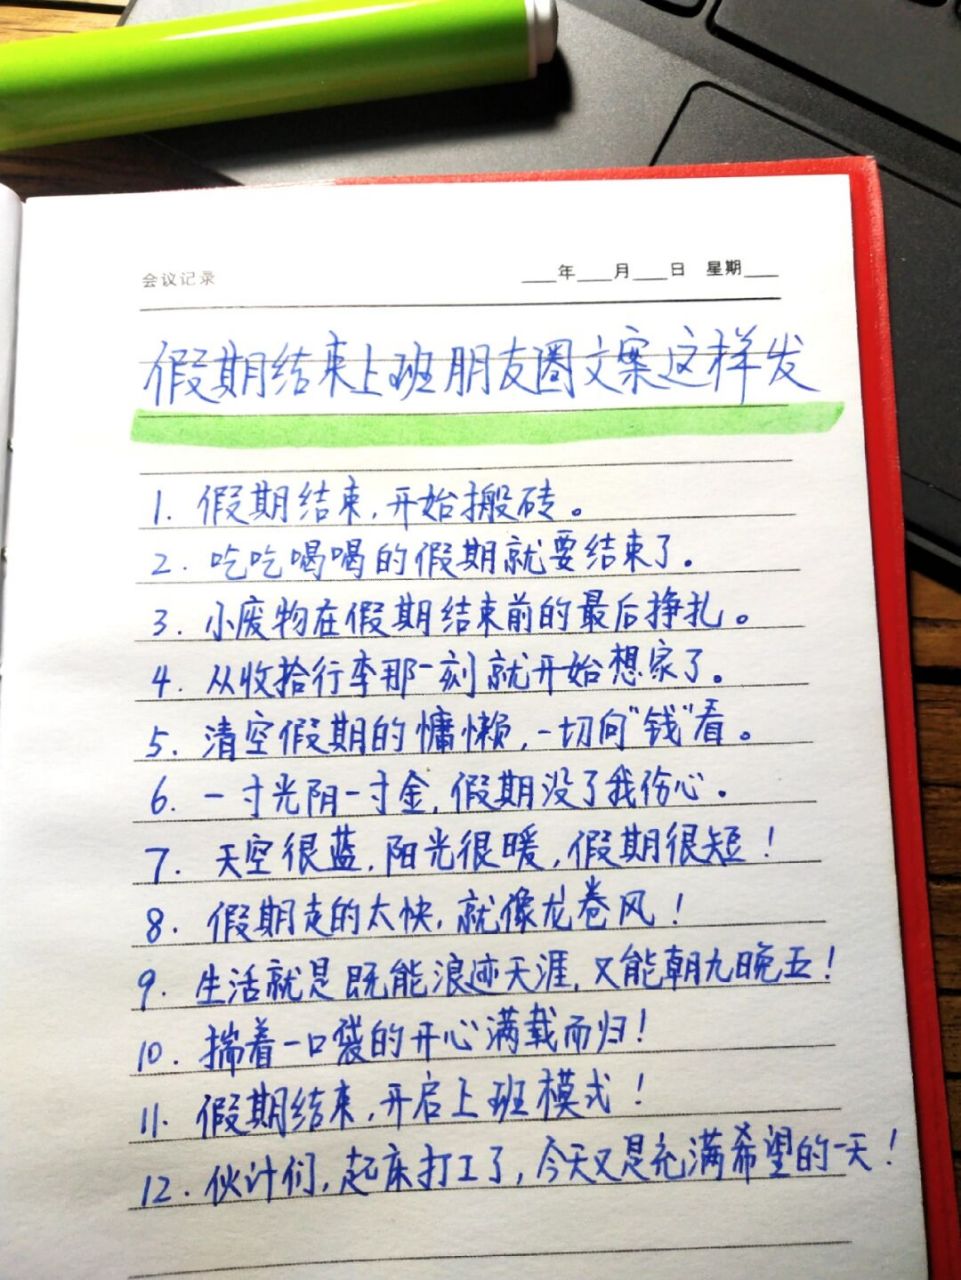 会议记录
____年____月____日 星期____
假期结束上班朋友圈文案这样发
1. 假期结束,开始搬砖。
2. 吃吃喝喝的假期就要结束了。
3. 小废物在假期结束前的最后挣扎。
4. 从收拾行李那一刻就开始想家了。
5. 清空假期的慵懒,一切向"钱"看。
6. 一寸光阴一寸金,假期没了我伤心。
7. 天空很蓝,阳光很暖,假期很短!
8. 假期走的太快,就像龙卷风!
9. 生活就是既能浪迹天涯,又能朝九晚五!
10. 揣着一口袋的开心满载而归!
11. 假期结束,开启上班模式!
12. 伙计们,起床打工了,今天又是充满希望的一天!